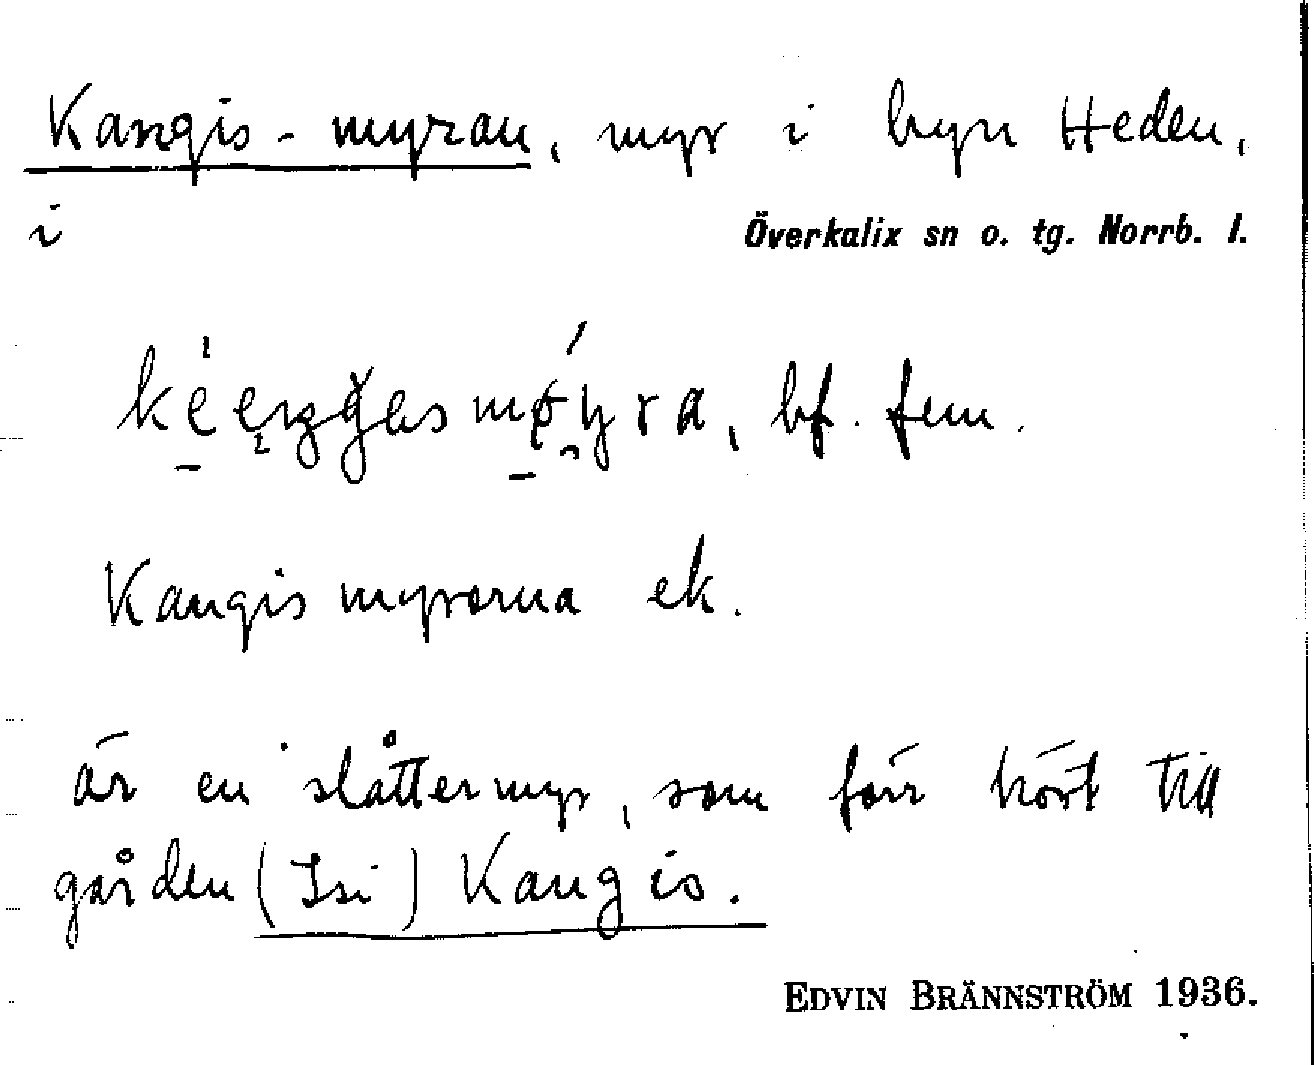 Kangis-myran, myr i byn Heden,
i Överkalix sn o. tg. Norrb. l.
bf. fem.
Kangismyrorna ek.
är en slåttermyr, som förr hört till
gården (Isi) Kangis.
EDVIN BRÄNNSTRÖM 1936.